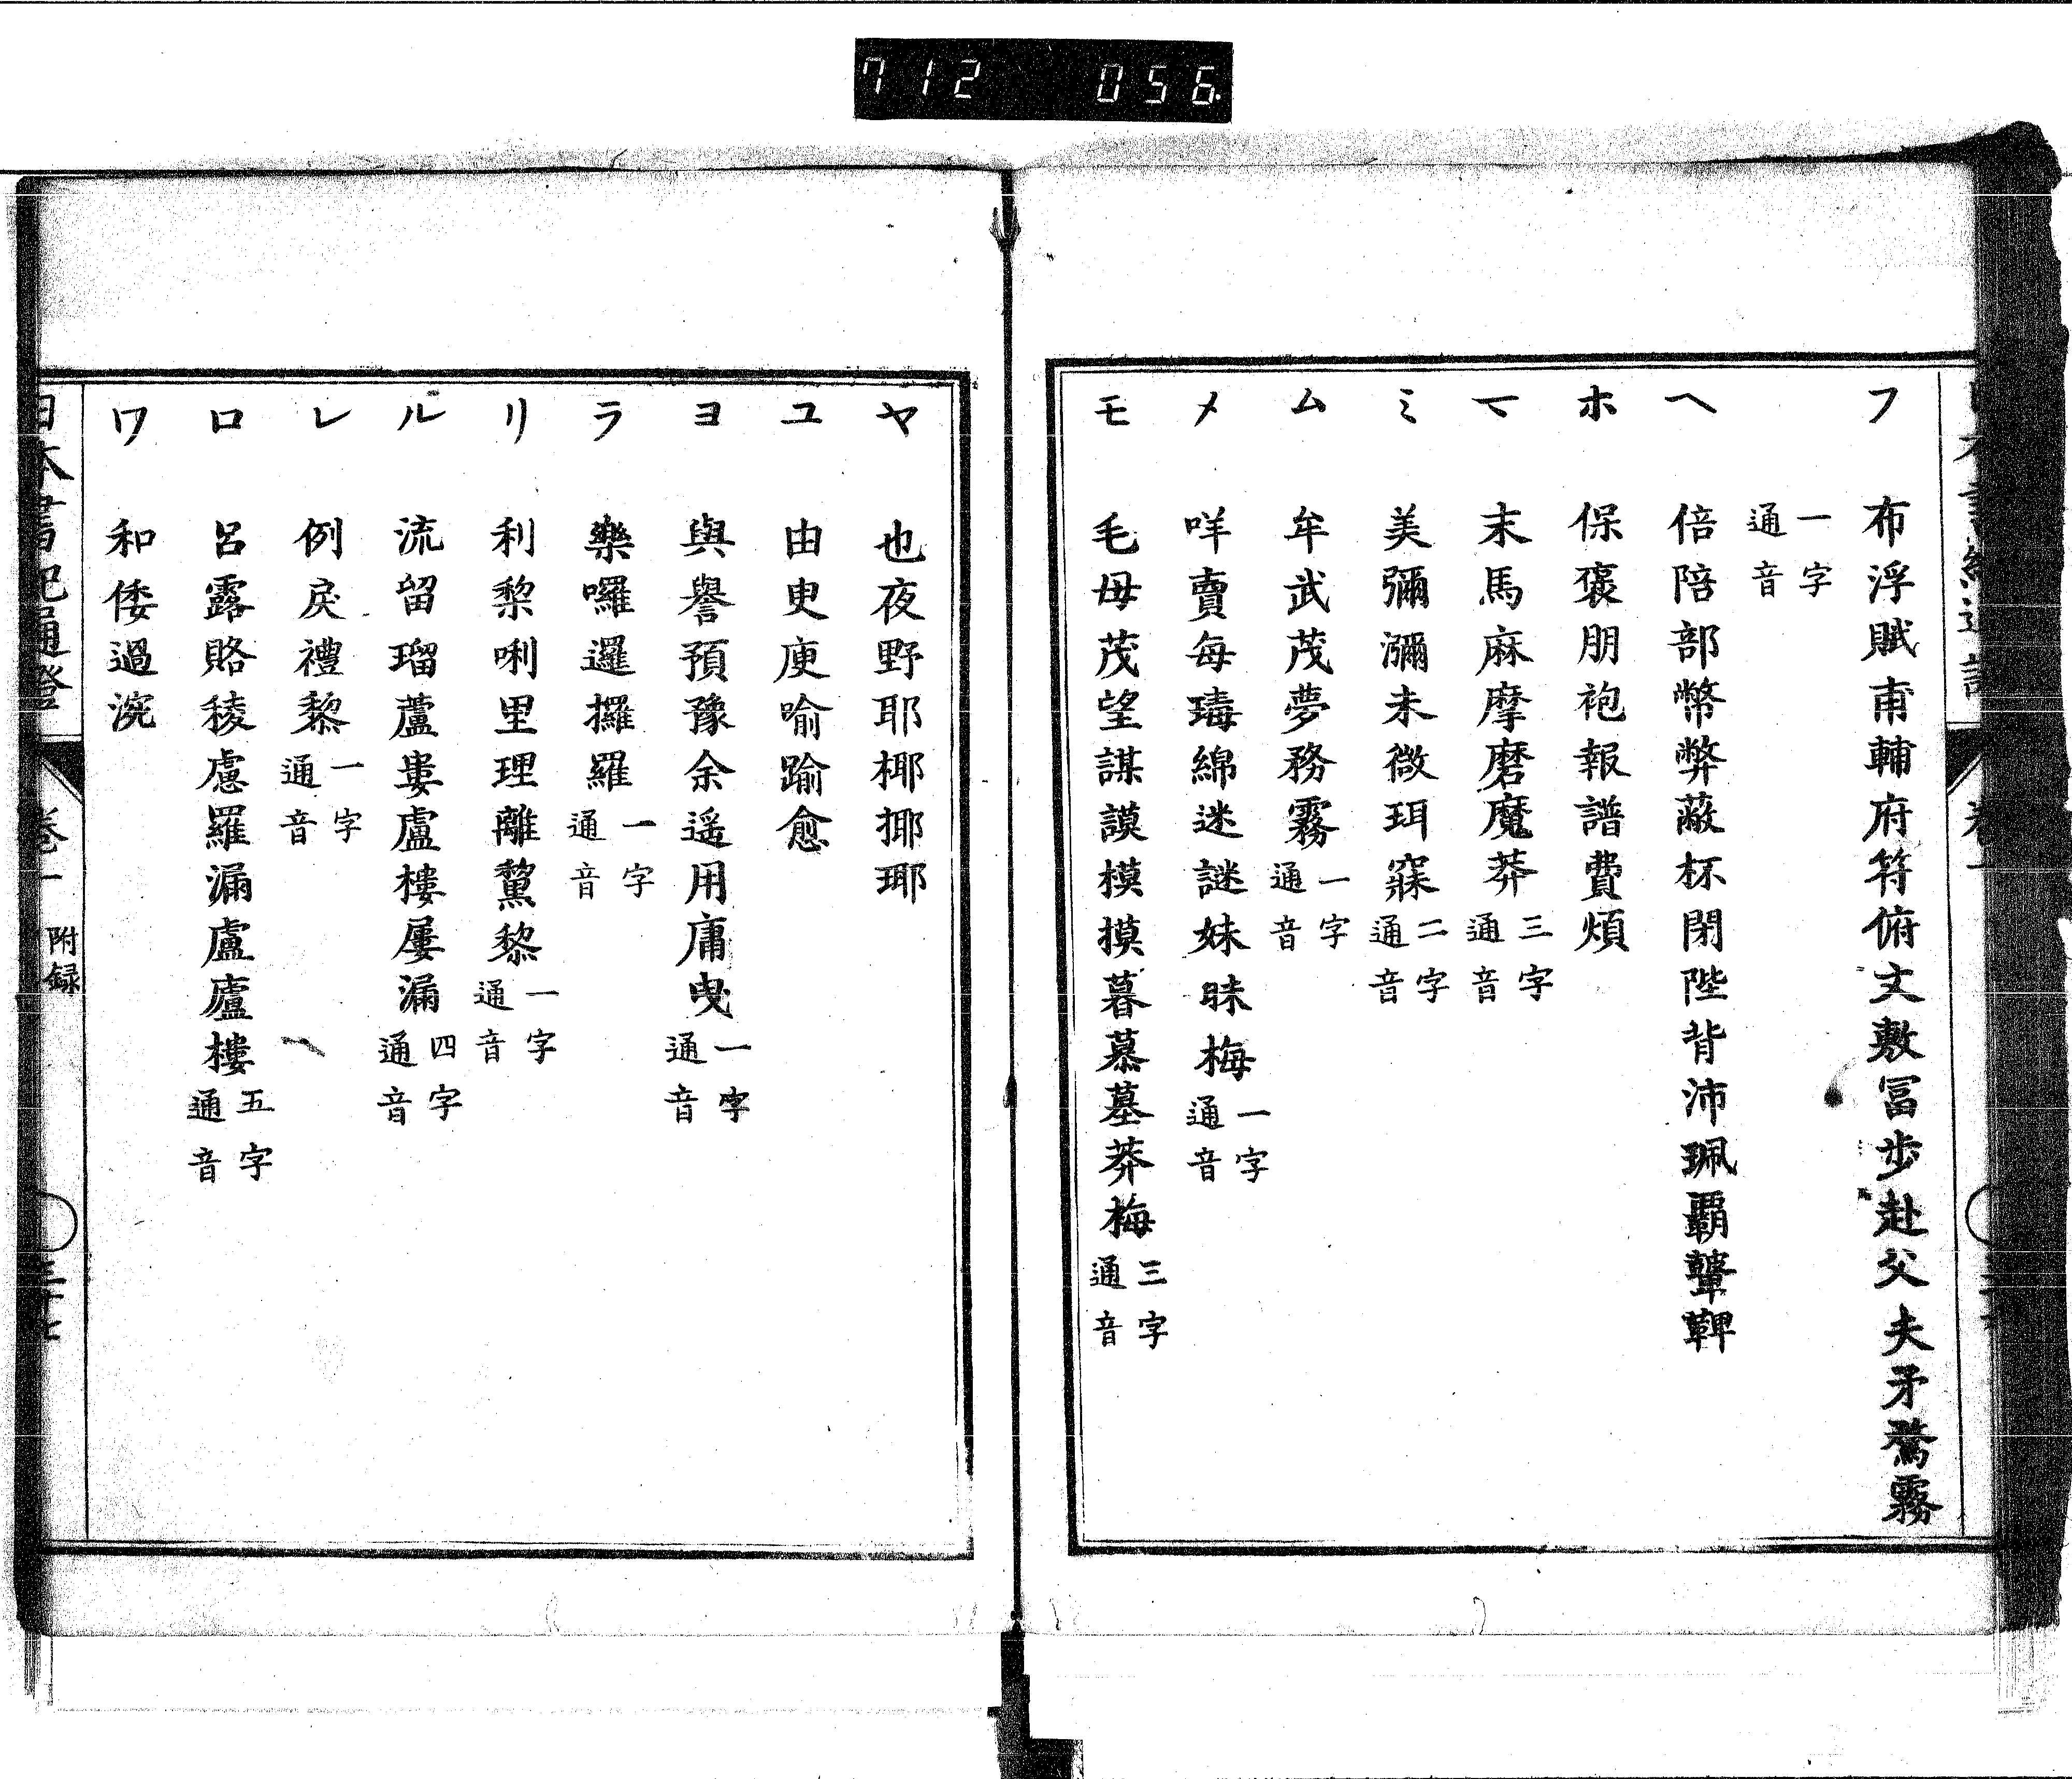 712 056
フ 布浮賦甫輔府符俯文敷冨步赴父夫矛騖霧
一字通音
ヘ 倍陪部幣弊蔽杯閉陛背沛珮覇鼙鞞
ホ 保裒朋袍報譜費煩
マ 末馬麻摩磨魔莽 三字通音
ミ 美彌瀰未微珥寐 二字通音
ム 牟武茂夢務霧 一字通音
メ 咩賣每瑇綿迷謎妹昧梅 一字通音
モ 毛母茂望謀謨模摸暮慕墓莽梅 三字通音
ヤ 也夜野耶椰揶瑘
ユ 由臾庾喻踰愈
ヨ 與譽預豫余遥用庸曳 一字通音
ラ 樂囉邏攞羅 一字通音
リ 利梨唎里理離黧黎 一字通音
ル 流留瑠蘆婁盧樓屢漏 四字通音
レ 例戾禮黎 一字通音
ロ 呂露賂稜慮羅漏盧廬樓 五字通音
ワ 和倭過涴
日本書紀通證 卷一 附録 三十七